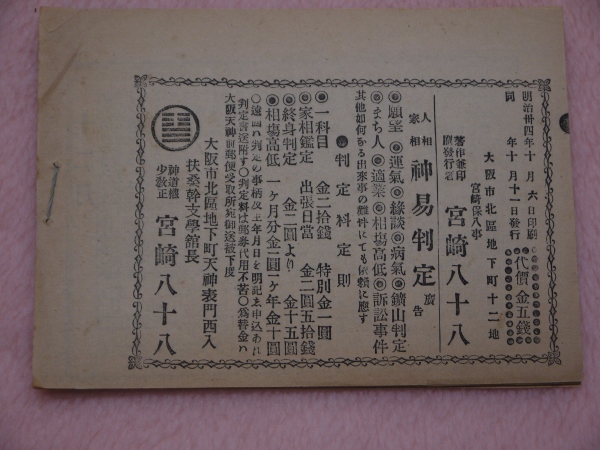 明治卅四年十月六日印刷
同年十月十一日發行
代價金五錢
大阪市北區地下町十二地
宮崎保八事
著作兼印刷發行者
宮崎八十八
人相家相神易判定廣告
◎願望◎運氣◎縁談◎病氣◎鑛山判定
◎まち人◎適業◎相塲高低◎訴訟事件
其他如何なる出來事の雖件にても依頼に應す
●判定料定則
◎一科目金二拾錢特別金一圓
◎家相鑑定出張日當金二圓五拾錢
◎終身判定金二圓より金十五圓
◎相塲高低一ヶ月分金一圓一ヶ年金十圓
○遠國ハ判定の事柄及生年月日を明記し申込あれ
判定書送附す○判定料は郵券代用不苦○爲替金ハ
大阪天神前郵便受取所宛御送被下度
大阪市北區地下町天神表門西入
扶桑幹支學館長
神道權少教正
宮崎八十八